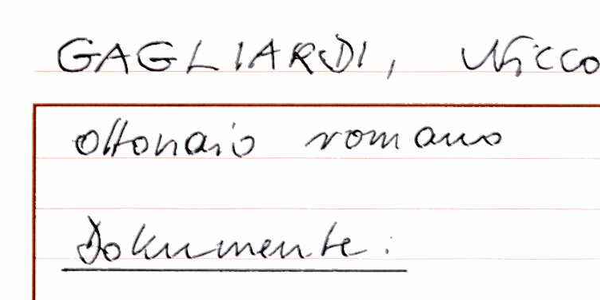 GAGLIARDI, Nicco
ottonaio romano
Dokumente: